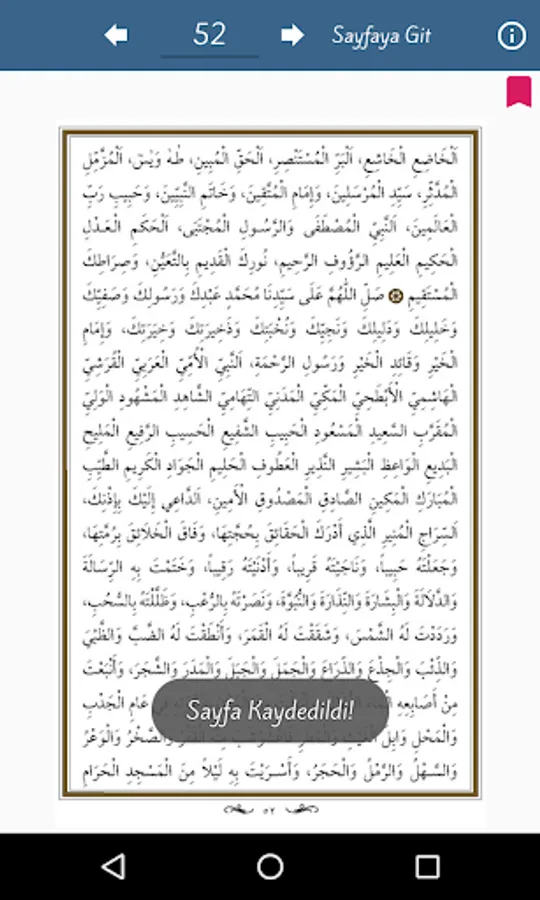 52
Sayfaya Git
اَلْخَاضِعِ الْخَاشِعِ، اَلْبَرِّ الْمُسْتَنْصِرِ، اَلْحَقِّ الْمُبِينِ، طٰهٰ وَيٰسٓ، اَلْمُزَّمِّلِ
الْمُدَّثِّرِ، سَيِّدِ الْمُرْسَلِينَ، وَإِمَامِ الْمُتَّقِينَ، وَخَاتَمِ النَّبِيِّينَ، وَحَبِيبِ رَبِّ
الْعَالَمِينَ، اَلنَّبِيِّ الْمُصْطَفَى وَالرَّسُولِ الْمُجْتَبَى، اَلْحَكَمِ الْعَدْلِ
الْحَكِيمِ الْعَلِيمِ الرَّؤُوفِ الرَّحِيمِ، نُورِكَ الْقَدِيمِ بِالتَّعَيُّنِ، وَصِرَاطِكَ
الْمُسْتَقِيمِ صَلِّ اللّٰهُمَّ عَلَى سَيِّدِنَا مُحَمَّدٍ عَبْدِكَ وَرَسُولِكَ وَصَفِيِّكَ
وَخَلِيلِكَ وَدَلِيلِكَ وَنَجِيِّكَ وَنُخْبَتِكَ وَذَخِيرَتِكَ وَخِيَرَتِكَ، وَإِمَامِ
الْخَيْرِ وَقَائِدِ الْخَيْرِ وَرَسُولِ الرَّحْمَةِ، اَلنَّبِيِّ الْأُمِّيِّ الْعَرَبِيِّ الْقُرَشِيِّ
الْهَاشِمِيِّ الْأَبْطَحِيِّ الْمَكِّيِّ الْمَدَنِيِّ التِّهَامِيِّ الشَّاهِدِ الْمَشْهُودِ الْوَلِيِّ
الْمُقَرَّبِ السَّعِيدِ الْمَسْعُودِ الْحَبِيبِ الشَّفِيعِ الْحَسِيبِ الرَّفِيعِ الْمَلِيحِ
الْبَدِيعِ الْوَاعِظِ الْبَشِيرِ النَّذِيرِ الْعَطُوفِ الْحَلِيمِ الْجَوَادِ الْكَرِيمِ الطَّيِّبِ
الْمُبَارَكِ الْمَكِينِ الصَّادِقِ الْمَصْدُوقِ الْأَمِينِ، اَلدَّاعِي إِلَيْكَ بِإِذْنِكَ،
اَلسِّرَاجِ الْمُنِيرِ الَّذِي أَدْرَكَ الْحَقَائِقَ بِحُجَّتِهَا، وَفَاقَ الْخَلَائِقَ بِرُمَّتِهَا،
وَجَعَلْتَهُ حَبِيباً، وَنَاجَيْتَهُ قَرِيباً، وَأَدْنَيْتَهُ رَقِيباً، وَخَتَمْتَ بِهِ الرِّسَالَةَ
وَالدَّلَالَةَ وَالْبِشَارَةَ وَالنِّذَارَةَ وَالنُّبُوَّةَ، وَنَصَرْتَهُ بِالرُّعْبِ، وَظَلَّلْتَهُ بِالسُّحُبِ،
وَرَدَدْتَ لَهُ الشَّمْسَ، وَشَقَقْتَ لَهُ الْقَمَرَ، وَأَنْطَقْتَ لَهُ الضَّبَّ وَالظَّبْيَ
وَالذِّئْبَ وَالْجِذْعَ وَالذِّرَاعَ وَالْجَمَلَ وَالْجَبَلَ وَالْمَدَرَ وَالشَّجَرَ، وَأَنْبَعْتَ
مِنْ أَصَابِعِهِ عَامِ الْجَدْبِ
وَالْمَحْلِ وَابِلَ وَالصَّخْرُ وَالْوَعْرُ
وَالسَّهْلُ وَالرَّمْلُ وَالْحَجَرُ، وَأَسْرَيْتَ بِهِ لَيْلاً مِنَ الْمَسْجِدِ الْحَرَامِ
Sayfa Kaydedildi!
٥٢